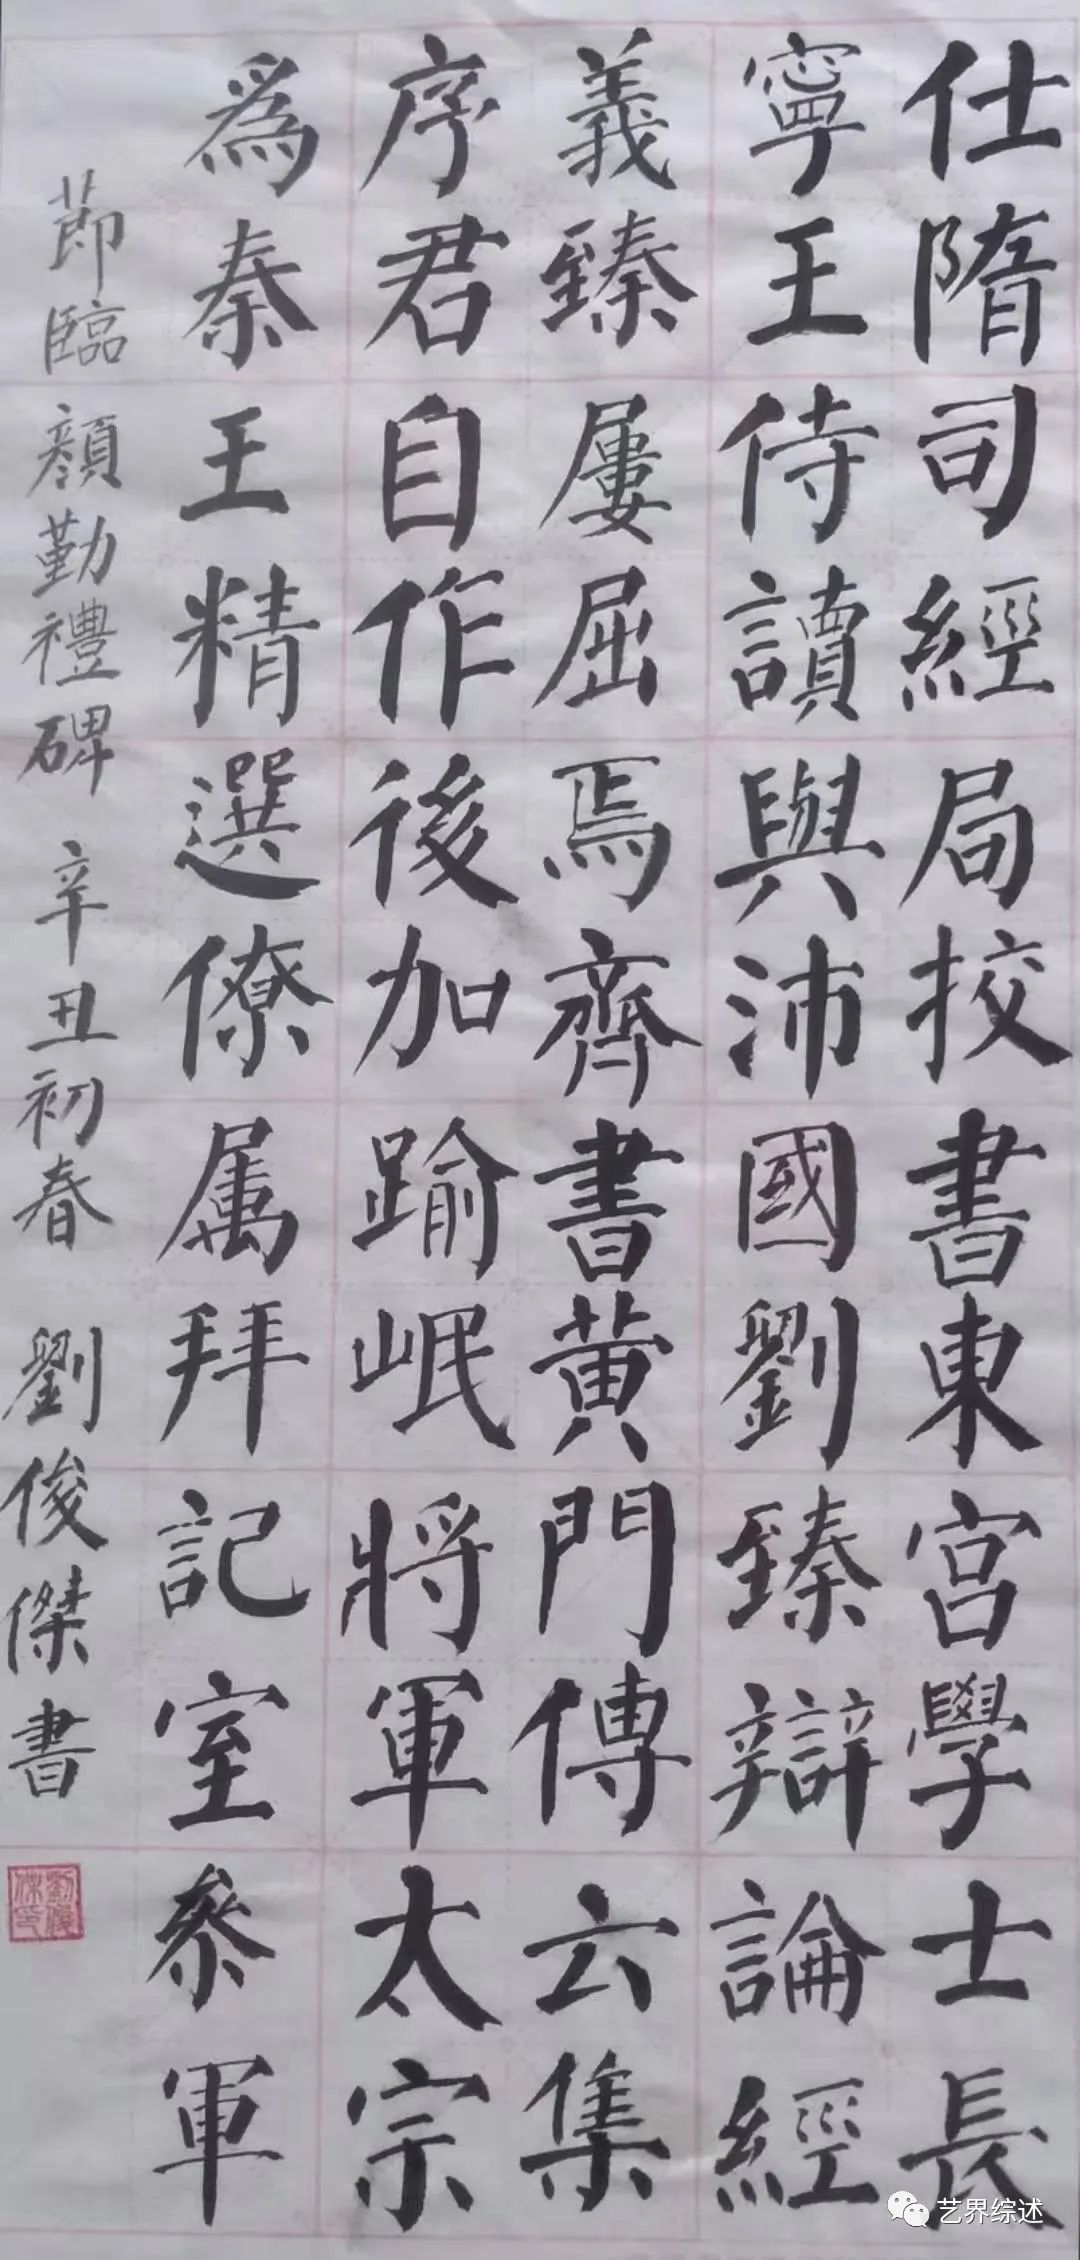 仕隋司經局挍書東宮學士長
寧王侍讀與沛國劉臻辯論經
義臻屢屈焉齊書黃門傳云集
序君自作後加踰岷將軍太宗
為秦王精選僚属拜記室叅軍
莭臨顏勤禮碑 辛丑初春 劉俊傑書
劉俊傑印
艺界综述